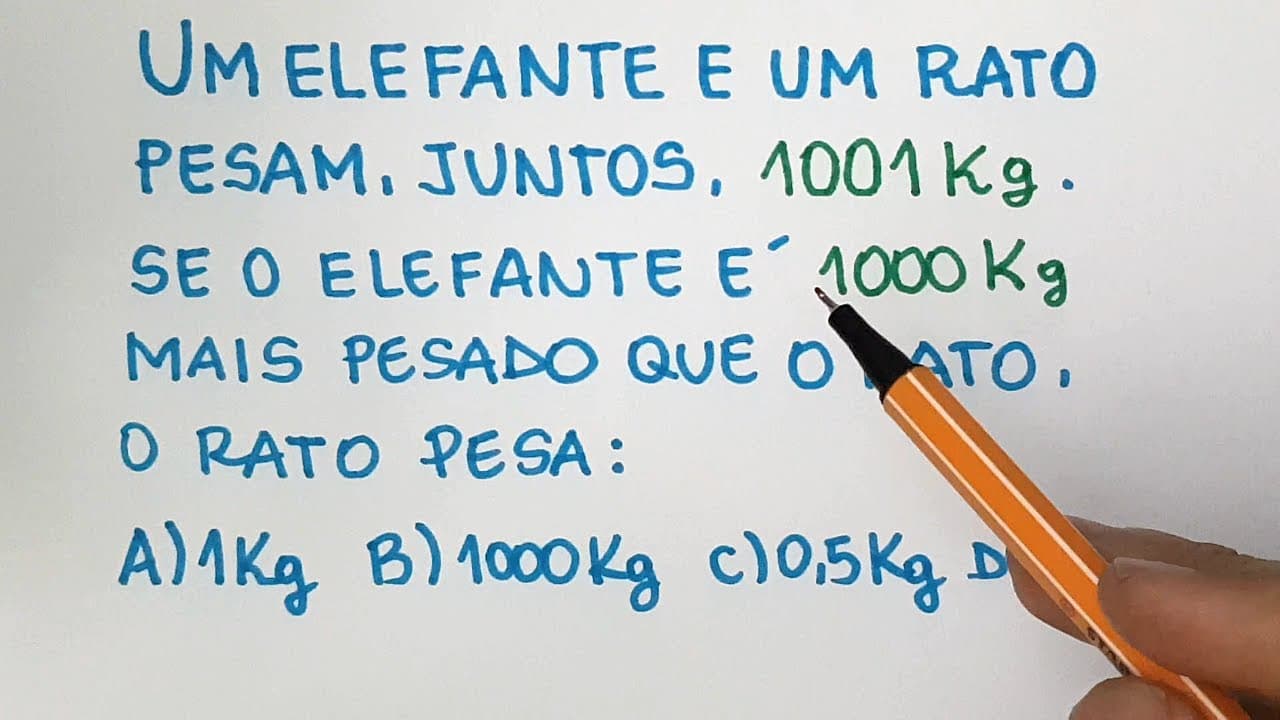 UM ELEFANTE E UM RATO
PESAM, JUNTOS, 1001 Kg.
SE O ELEFANTE É 1000 Kg
MAIS PESADO QUE O RATO,
O RATO PESA:
A) 1Kg B) 1000Kg C) 0,5Kg D